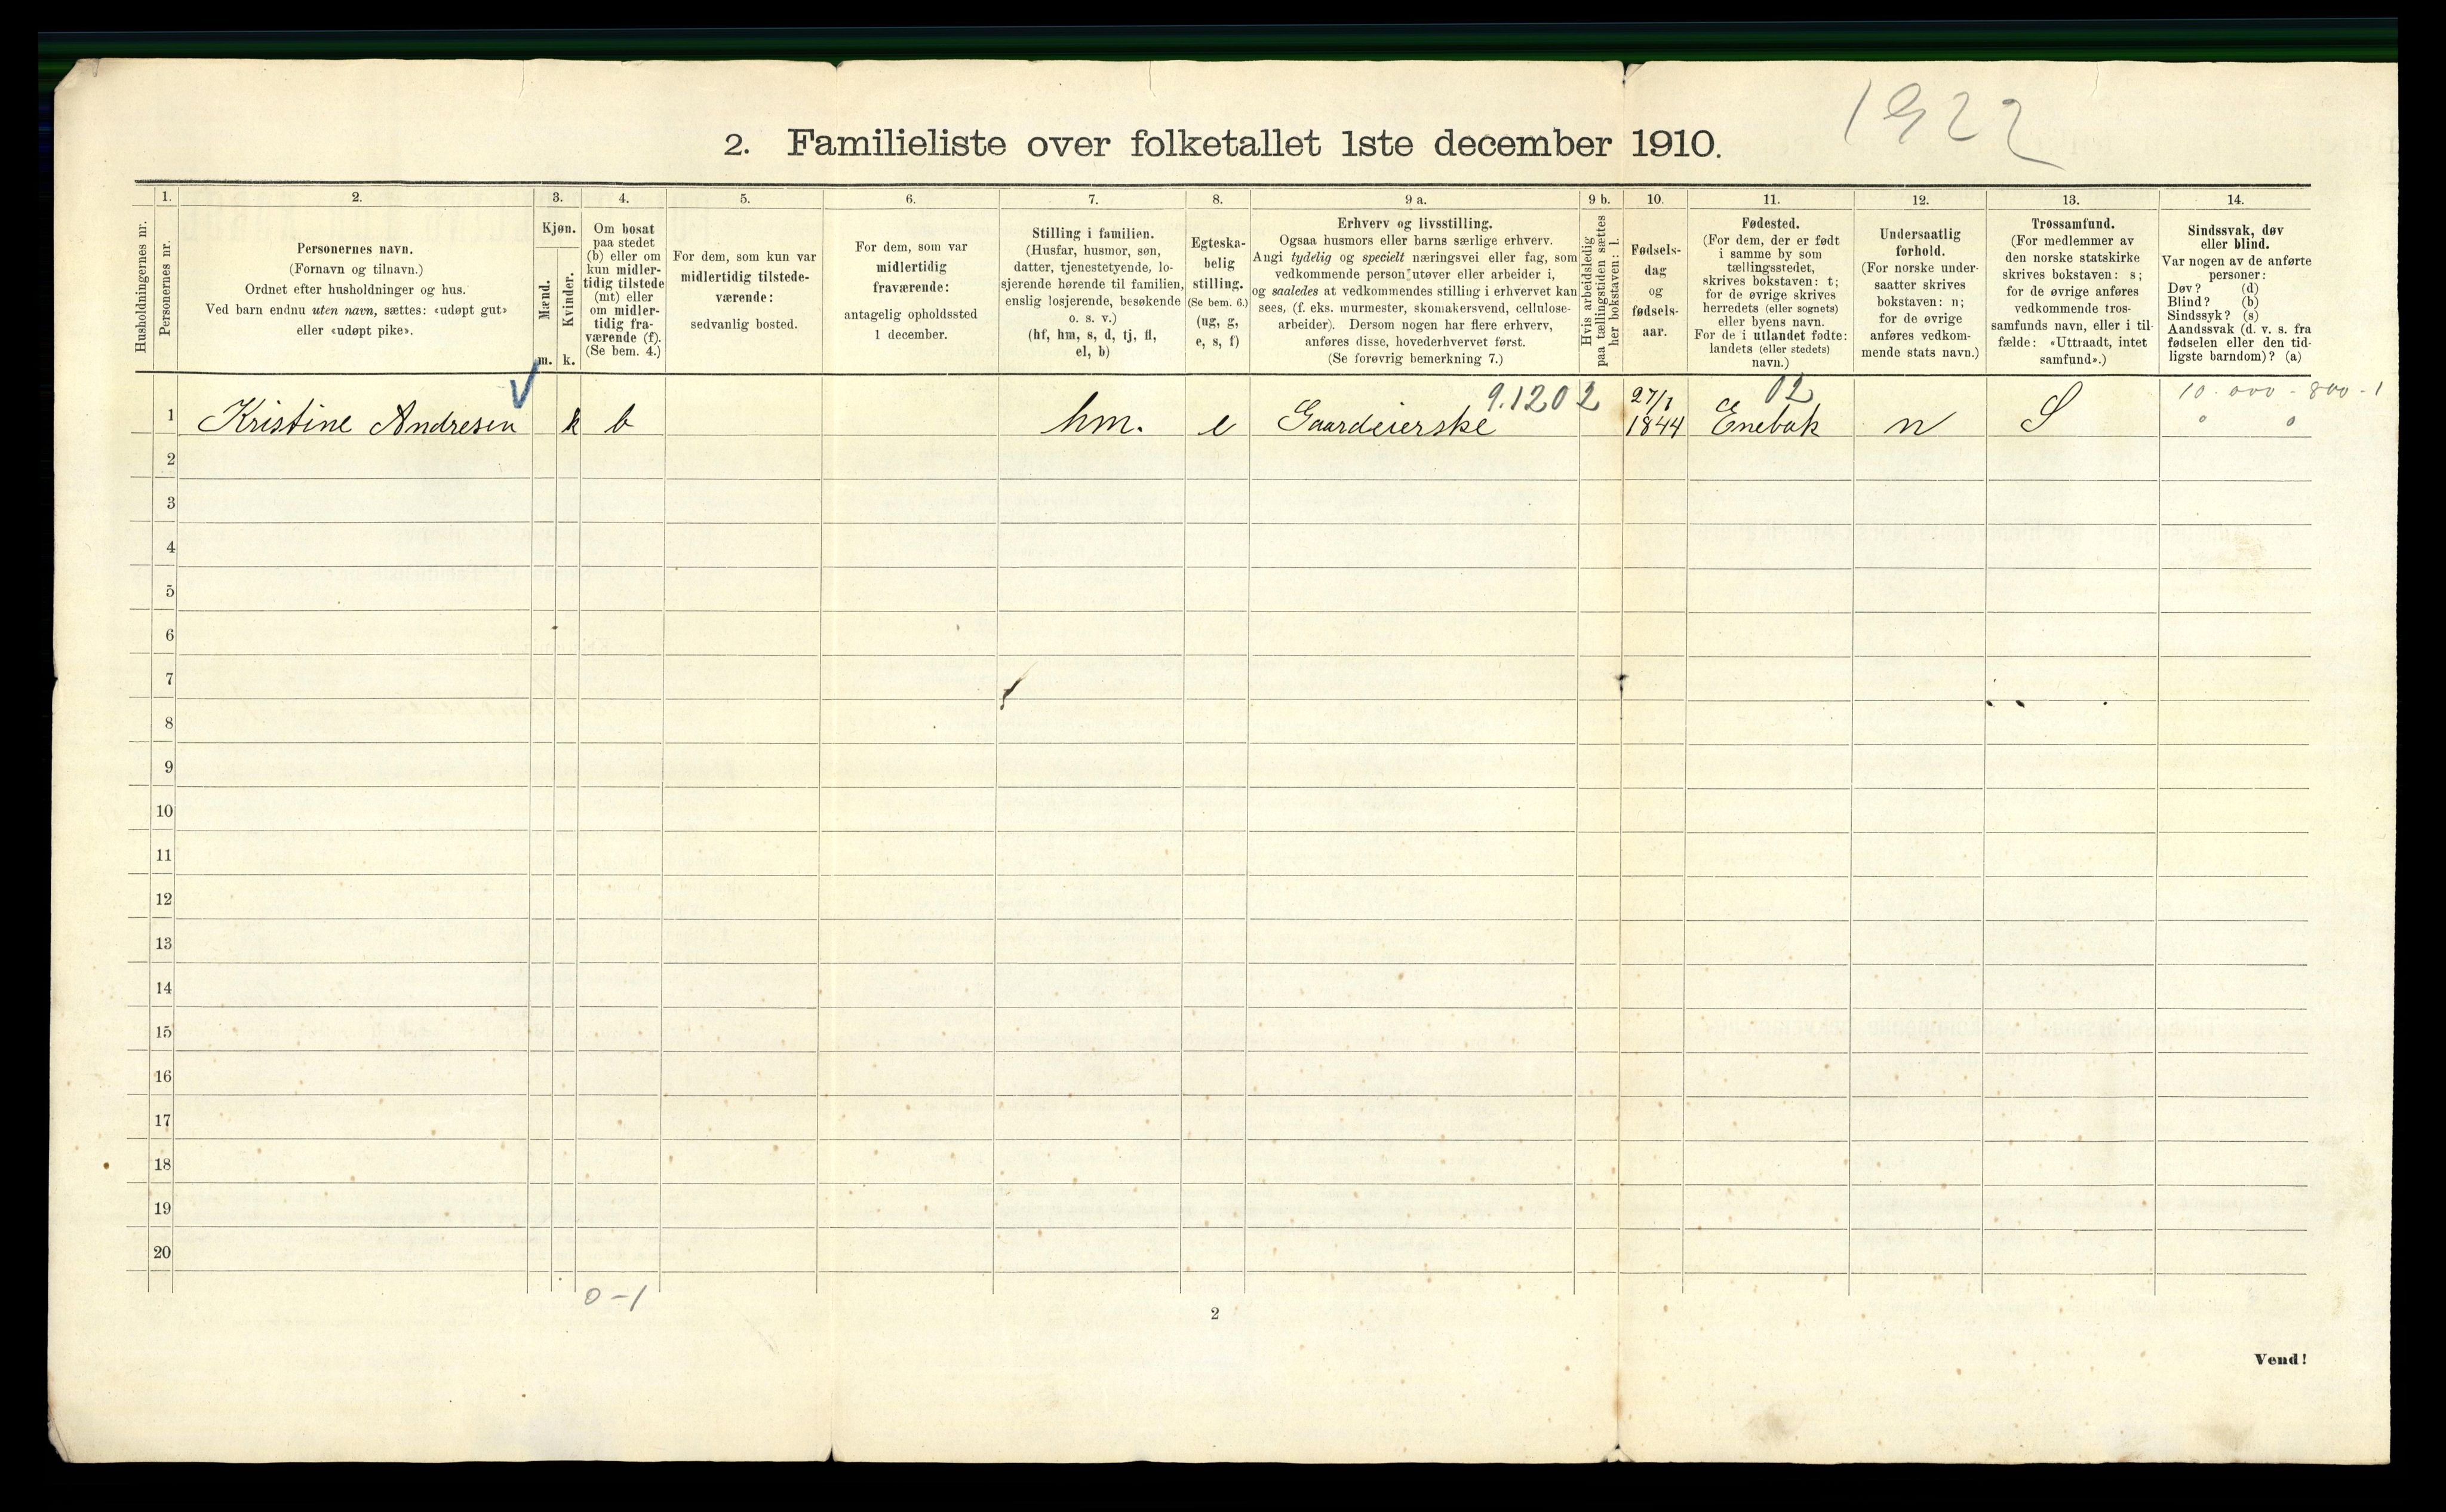 1922
2. Familieliste over folketallet 1ste december 1910.
Husholdningernes nr.
1.
Personernes nr.
2.
Personernes navn.
(Fornavn og tilnavn.)
Ordnet efter husholdninger og hus.
Ved barn endnu uten navn, sættes: «udøpt gut»
eller «udøpt pike».
3.
Kjøn.
Mænd.
m.
Kvinder.
k.
4.
Om bosat
paa stedet
(b) eller om
kun midler-
tidig tilstede
(mt) eller
om midler-
tidig fra-
værende (f).
(Se bem. 4.)
5.
For dem, som kun var
midlertidig tilstede-
værende:
sedvanlig bosted.
6.
For dem, som var
midlertidig
fraværende:
antagelig opholdssted
1 december.
7.
Stilling i familien.
(Husfar, husmor, søn,
datter, tjenestetyende, lo-
sjerende hørende til familien,
enslig losjerende, besøkende
o. s. v.)
(hf, hm, s, d, tj, fl,
el, b)
8.
Egteska-
belig
stilling.
(Se bem. 6.)
(ug, g,
e, s, f)
9 a.
Erhverv og livsstilling.
Ogsaa husmors eller barns særlige erhverv.
Angi tydelig og specielt næringsvei eller fag, som
vedkommende person utøver eller arbeider i,
og saaledes at vedkommendes stilling i erhvervet kan
sees, (f. eks. murmester, skomakersvend, cellulose-
arbeider). Dersom nogen har flere erhverv,
anføres disse, hovederhvervet først.
(Se forøvrig bemerkning 7.)
9 b.
Hvis arbeidsledig
paa tællingstiden sættes
her bokstaven: l.
10.
Fødsels-
dag
og
fødsels-
aar.
11.
Fødested.
(For dem, der er født
i samme by som
tællingsstedet,
skrives bokstaven: t;
for de øvrige skrives
herredets (eller sognets)
eller byens navn.
For de i utlandet fødte:
landets (eller stedets)
navn.)
12.
Undersaatlig
forhold.
(For norske under-
saatter skrives
bokstaven: n;
for de øvrige
anføres vedkom-
mende stats navn.)
13.
Trossamfund.
(For medlemmer av
den norske statskirke
skrives bokstaven: s;
for de øvrige anføres
vedkommende tros-
samfunds navn, eller i til-
fælde: «Uttraadt, intet
samfund».)
14.
Sindssvak, døv
eller blind.
Var nogen av de anførte
personer:
Døv? (d)
Blind? (b)
Sindssyk? (s)
Aandssvak (d. v. s. fra
fødselen eller den tid-
ligste barndom)? (a)
9.1202 02 10.000-800-1
1 Kristine Andresen k b hm. e Gaardeierske 1844 Enebak n S
2
3
4
5
6
7
8
9
10
11
12
13
14
15
16
17
18
19
20
0-1
2
Vend!